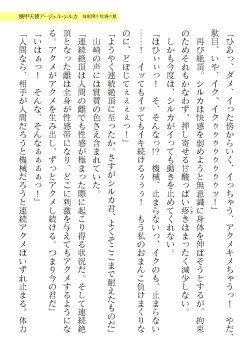 「ひあっ、ダメ、イった傍からいく、イっちゃう、アクメキメちゃうっ！　やだ、
駄目、いや、イク、イクゥゥゥゥゥゥゥゥッ！」
再び絶頂、シルカは快感を弱めようと無意識に身体を伸ばそうとするが、拘束
のためそれもかなわず、押し寄せる甘酸っぱい疼きはまったく減少しない。
しかも今度は、シルカがイっても動きを止めてくれない。
「はひぃっ！　そ、そんなっ!?　機械、止まらないっ、イクの、も、止まらない
……！　イッてもイッてもイキ続けるぅぅぅ！　もう私のおまんこ負けまくりな
のに、どぼじてぇぇぇぇっ！」
「ようやく連続絶頂に至ったか。さすがシルカ君、よくぞここまで耐えたものだ」
山崎の声には賞賛の色さえ含まれていた。
「連続絶頂は人間の雌でも性感が極まった際に起こり得る状況だ。そして連続絶
頂となった雌は全身が性感帯になり、どこに刺激を与えてもアクメするようにな
る。アクメがアクメを生み出し、ずっとアクメし続ける、つまり今の君だ」
「いはぁっ！　そんな、そんなぁぁぁぁっ！」
「人間なら、相手が人間だろうと機械だろうと連続アクメはいずれ止まる。体力